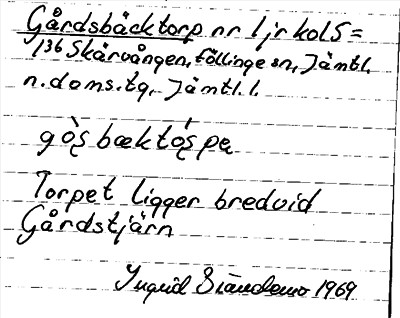 Gårdsbäcktorp nr 1 jr kol 5 =
136 Skärvången, Föllinge sn, Jämtl.
n. doms. tg, Jämtl. l.
gò̜s̨bæktó̜s̨pɐ
Torpet ligger bredvid
Gårdstjärn
Ingrid 1969